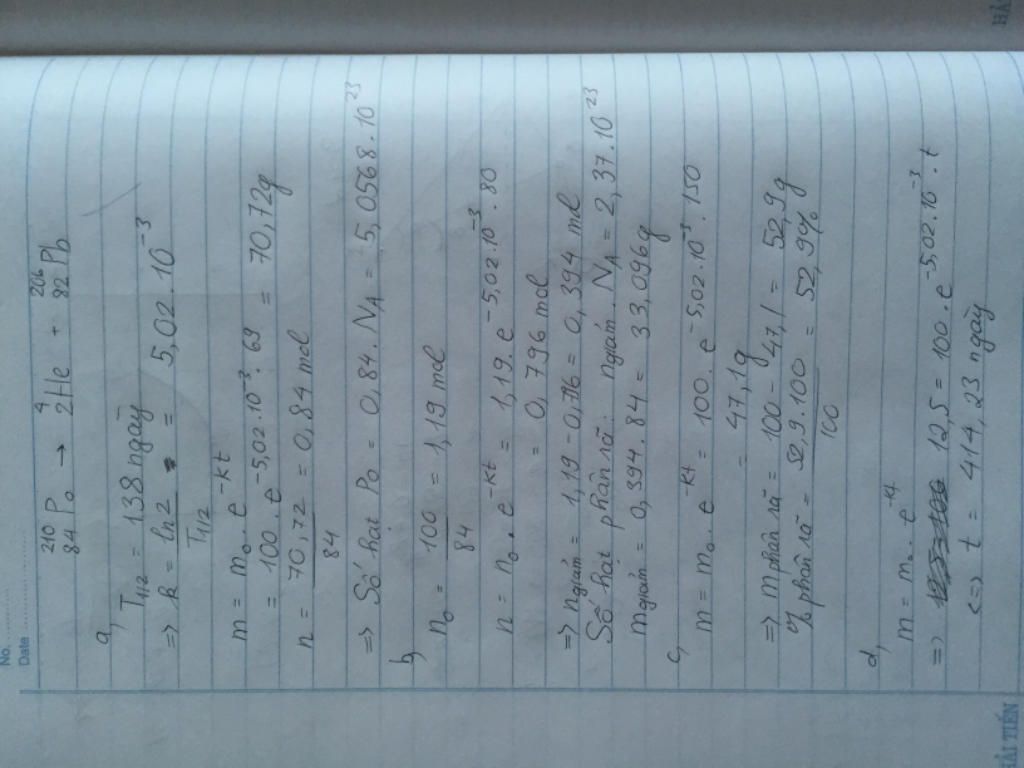 No. ............
Date ........................
²¹⁰₈₄Po → ⁴₂He + ²⁰⁶₈₂Pb
a, T₁/₂ = 138 ngày
=> k = ln2 / T₁/₂ = 5,02 . 10⁻³
m = m₀ . e^(-kt)
= 100 . e^(-5,02.10⁻³.69) = 70,72g
n = 70,72 / 84 = 0,84 mol
=> Số hạt Po = 0,84 . N_A = 5,0568 . 10²³
b,
n₀ = 100 / 84 = 1,19 mol
n = n₀ . e^(-kt) = 1,19 . e^(-5,02.10⁻³.80)
= 0,796 mol
=> n giảm = 1,19 - 0,796 = 0,394 mol
Số hạt phân rã: n giảm . N_A = 2,37 . 10²³
m giảm = 0,394 . 84 = 33,096g
c,
m = m₀ . e^(-kt) = 100 . e^(-5,02.10⁻³.150)
= 47,1g
=> m phân rã = 100 - 47,1 = 52,9g
% phân rã = 52,9.100 / 100 = 52,9%
d,
m = m₀ . e^(-kt)
=> 12,5 = 100 . e^(-5,02.10⁻³.t)
<=> t = 414,23 ngày
HẢI TIẾN
HẢ